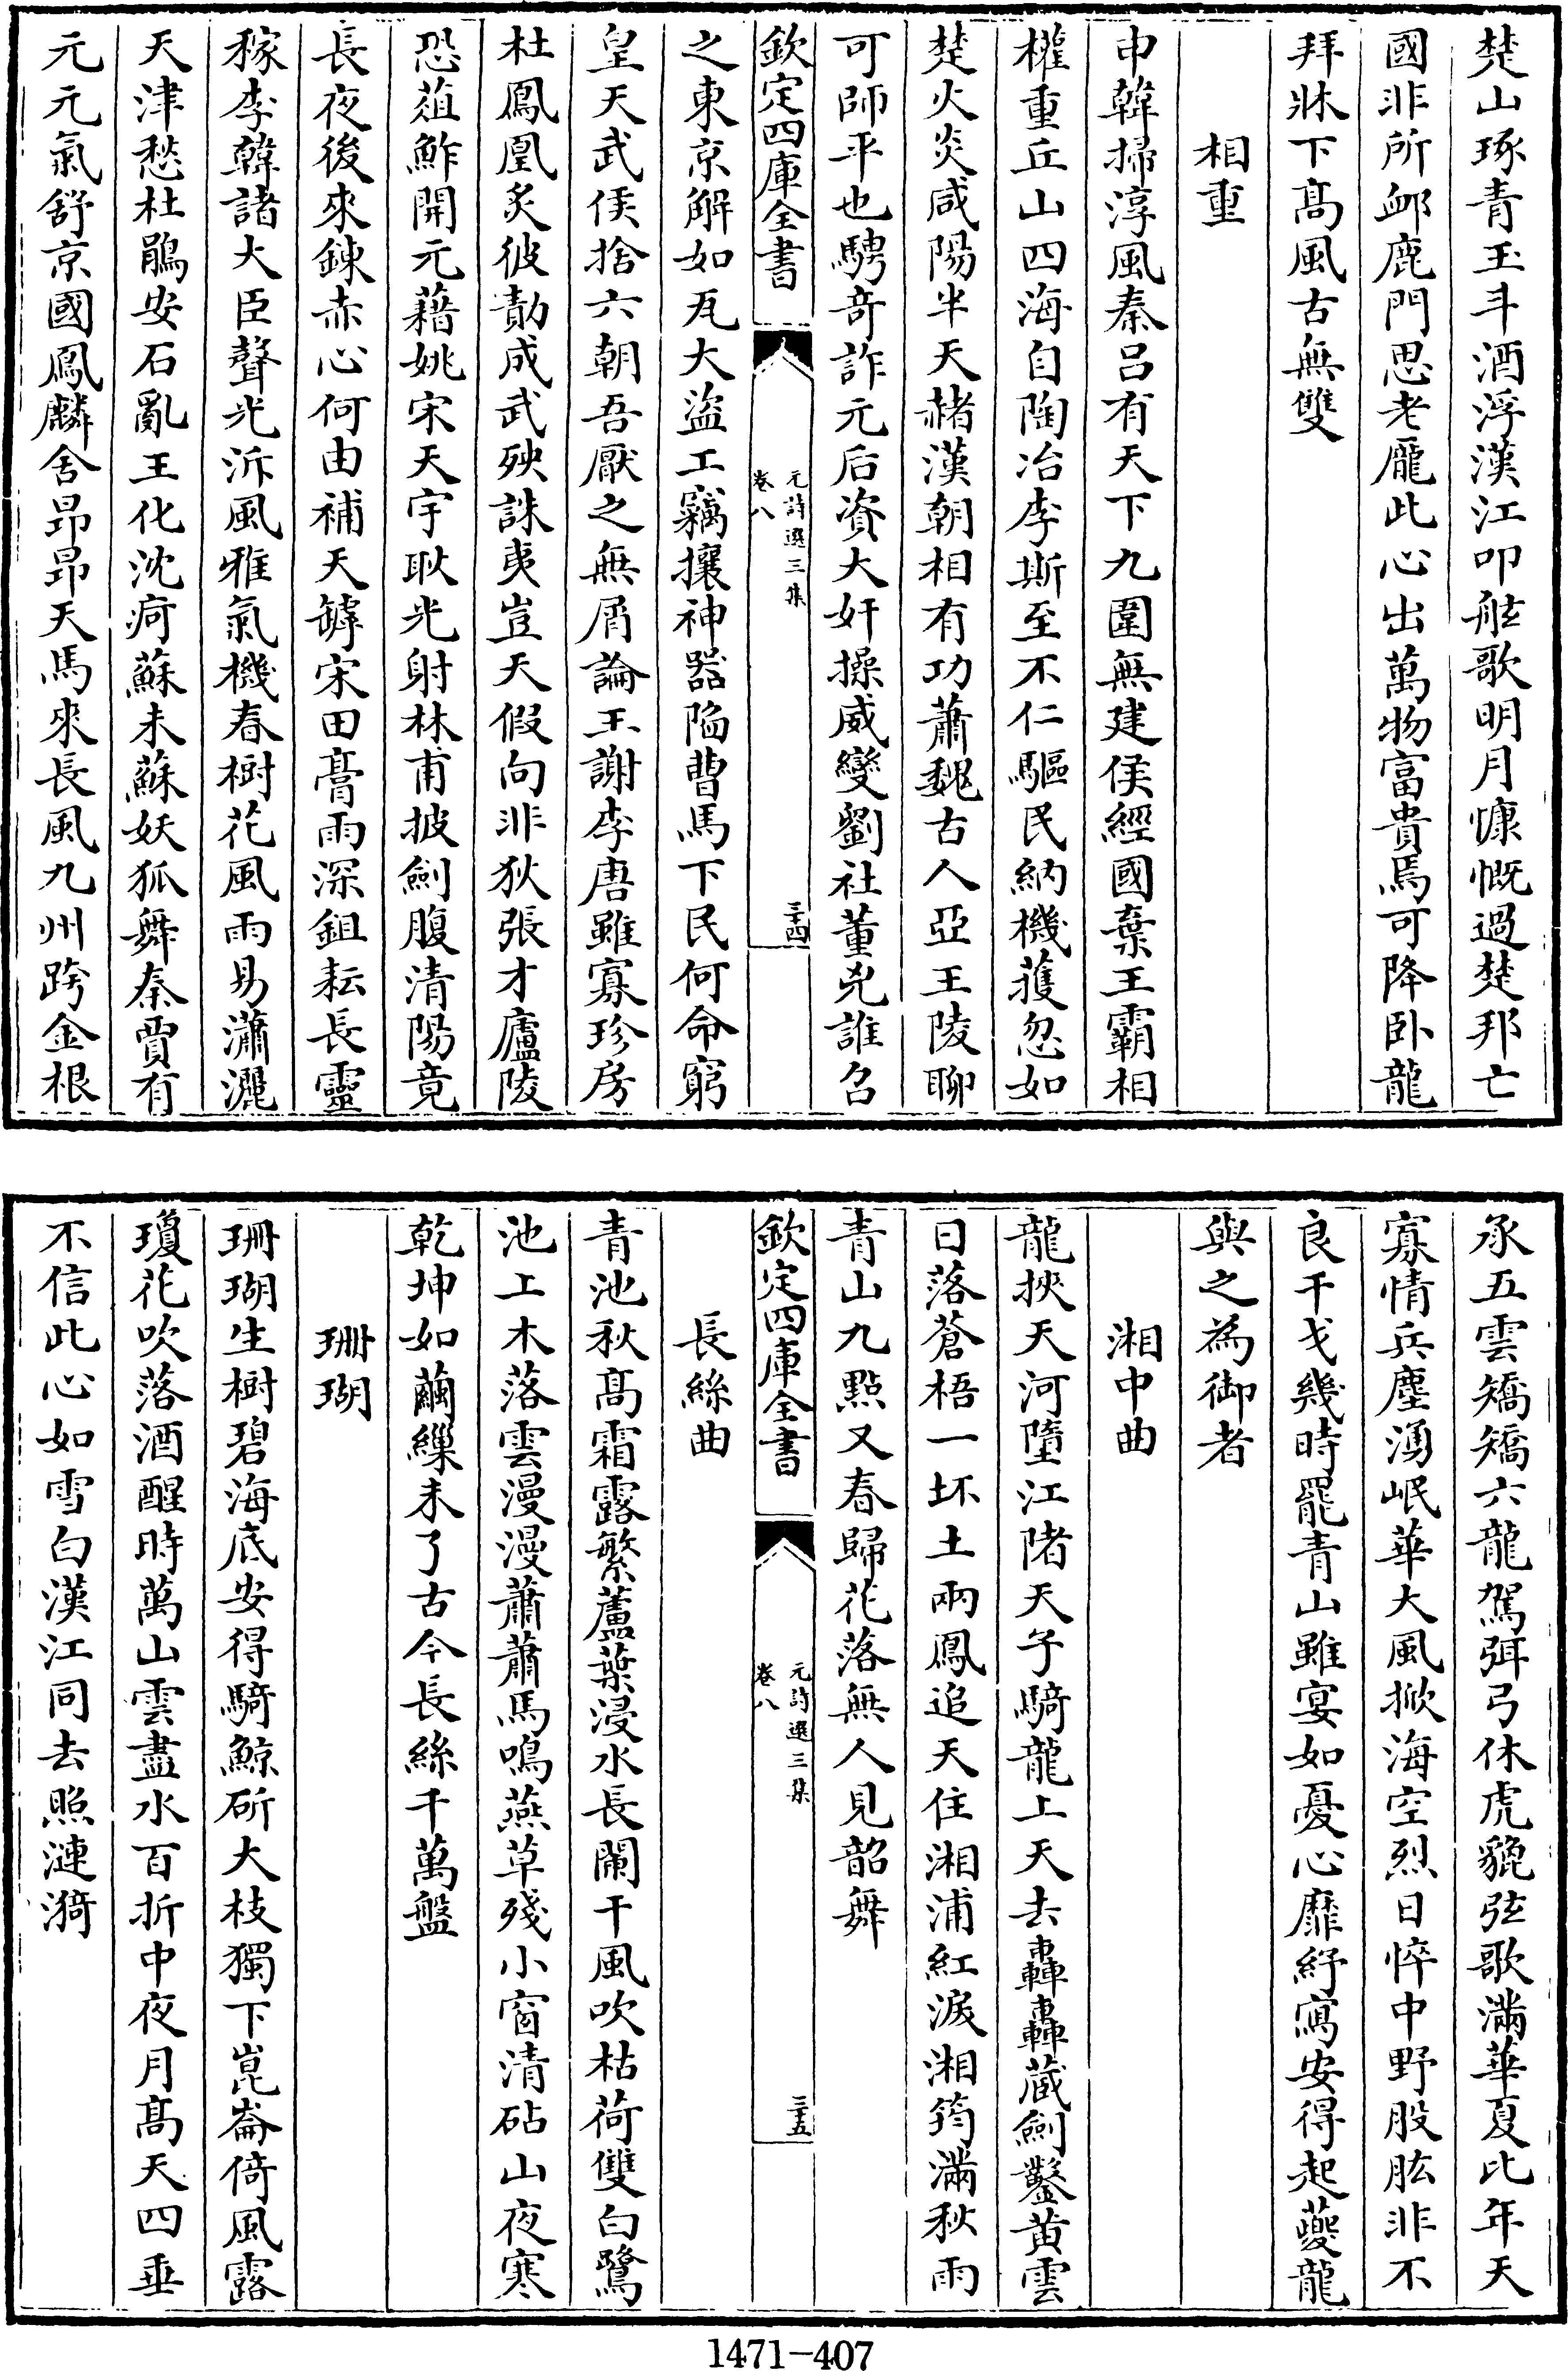 楚山琢青玉斗酒浮漢江叩舷歌明月慷慨過楚邦亡
國非所䘏鹿門思老龐此心出萬物富貴焉可降卧龍
拜牀下髙風古無雙
相重
申韓掃淳風秦吕有天下九圍無建侯經國棄王霸相
權重丘山四海自陶冶李斯至不仁驅民納機獲忽如
楚火炎咸陽半天赭漢朝相有功蕭魏古人亞王陵聊
可師平也騁奇詐元后資大奸操威變劉社董兇誰召
欽定四庫全書
元詩選三集
卷八
三十四
之東京解如瓦大盜工竊攘神器陥曹馬下民何命窮
皇天武侯捨六朝吾厭之無屑論王謝李唐雖寡珍房
杜鳳凰炙彼勣成武殃誅夷豈天假向非狄張才廬陵
恐葅鮓開元藉姚宋天宇耿光射林甫披劍腹清陽竟
長夜後來鍊赤心何由補天罅宋田膏雨深鉏耘長靈
稼李韓諸大臣聲光泝風雅氣機春樹花風雨易瀟灑
天津愁杜鵑安石亂王化沈疴蘇未蘇妖狐舞秦賈有
元元氣舒京國鳳麟舍昂昂天馬來長風九州跨金根
承五雲矯矯六龍駕弭弓休虎貔弦歌滿華夏比年天
寡情兵塵湧岷華大風掀海空烈日悴中野股肱非不
良干戈幾時罷青山雖宴如憂心靡紓寫安得起夔龍
與之為御者
湘中曲
龍挾天河墮江陼天子騎龍上天去轟轟藏劍鑿黄雲
日落蒼梧一坏土兩鳳追天住湘浦紅淚湘筠滿秋雨
青山九點又春歸花落無人見韶舞
欽定四庫全書
元詩選三集
卷八
三十五
長絲曲
青池秋髙霜露繁蘆葉浸水長闌干風吹枯荷雙白鷺
池上木落雲漫漫蕭蕭馬鳴燕草殘小窗清砧山夜寒
乾坤如繭繅未了古今長絲千萬盤
珊瑚
珊瑚生樹碧海底安得騎鯨斫大枝獨下崑崙倚風露
瓊花吹落酒醒時萬山雲盡水百折中夜月髙天四垂
不信此心如雪白漢江同去照漣漪
1471-407